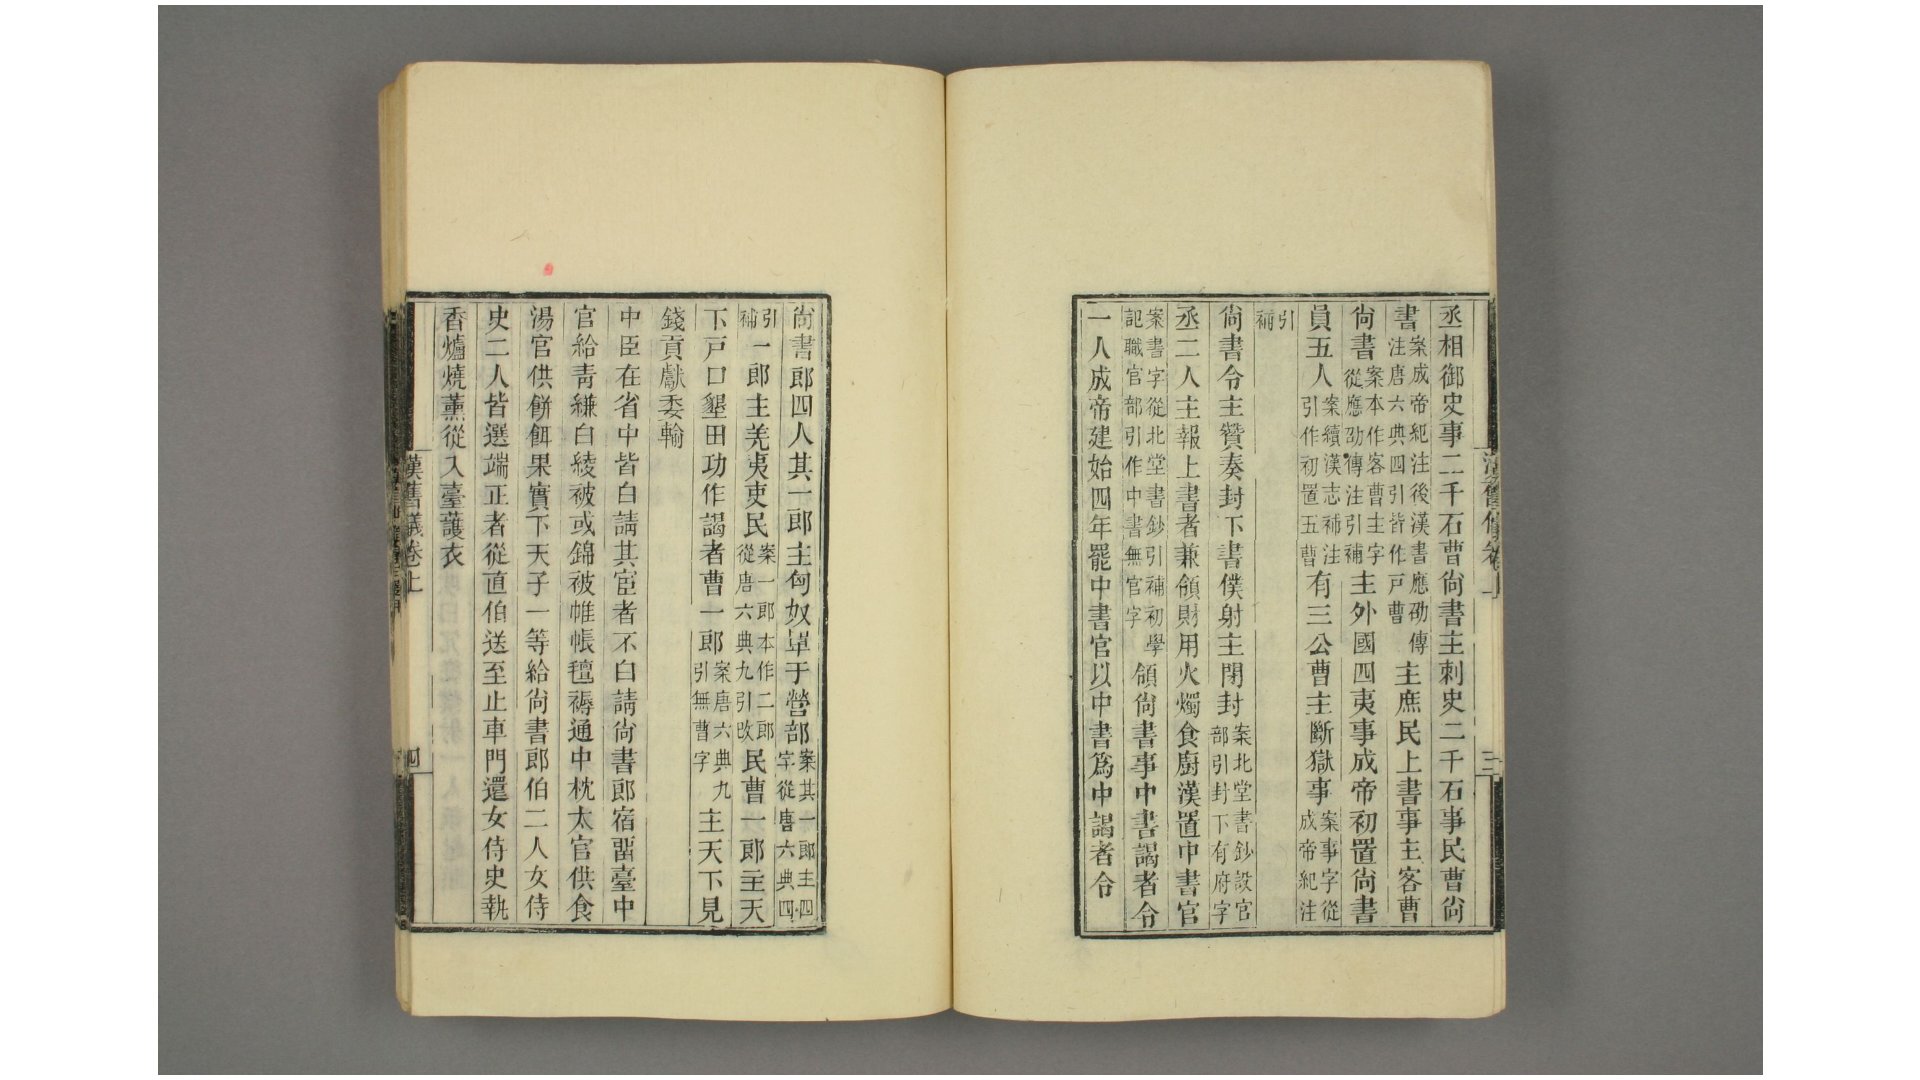 丞相御史事二千石曹尙書主刺史二千石事民曹尙
書案成帝紀注後漢書應劭傳注唐六典四引皆作戸曹主庶民上書事主客曹
尙書案本作客曹主字從應劭傳注引補主外國四夷事成帝初置尙書
員五人案續漢志補注引作初置五曹有三公曹主斷獄事案事字從成帝紀注
引補
尙書令主贊奏封下書僕射主閉封案北堂書鈔設官部引封下有府字
丞二人主報上書者兼領財用火燭食廚漢置中書官
案書字從北堂書鈔引補初學記職官部引作中書無官字領尙書事中書謁者令
一人成帝建始四年罷中書官以中書爲中謁者令
尙書郎四人其一郎主匈奴單于營部案其一郎主四字從唐六典四
引補一郎主羌夷吏民案一郎本作二郎從唐六典九引改民曹一郎主天
下戸口墾田功作謁者曹一郎案唐六典九引無曹字主天下見
錢貢獻委輸
中臣在省中皆白請其宦者不白請尙書郎宿畱臺中
官給靑縑白綾被或錦被帷帳氊褥通中枕太官供食
湯官供餅餌果實下天子一等給尙書郎伯二人女侍
史二人皆選端正者從直伯送至止車門還女侍史執
香爐燒薰從入臺護衣
漢舊儀卷上
四